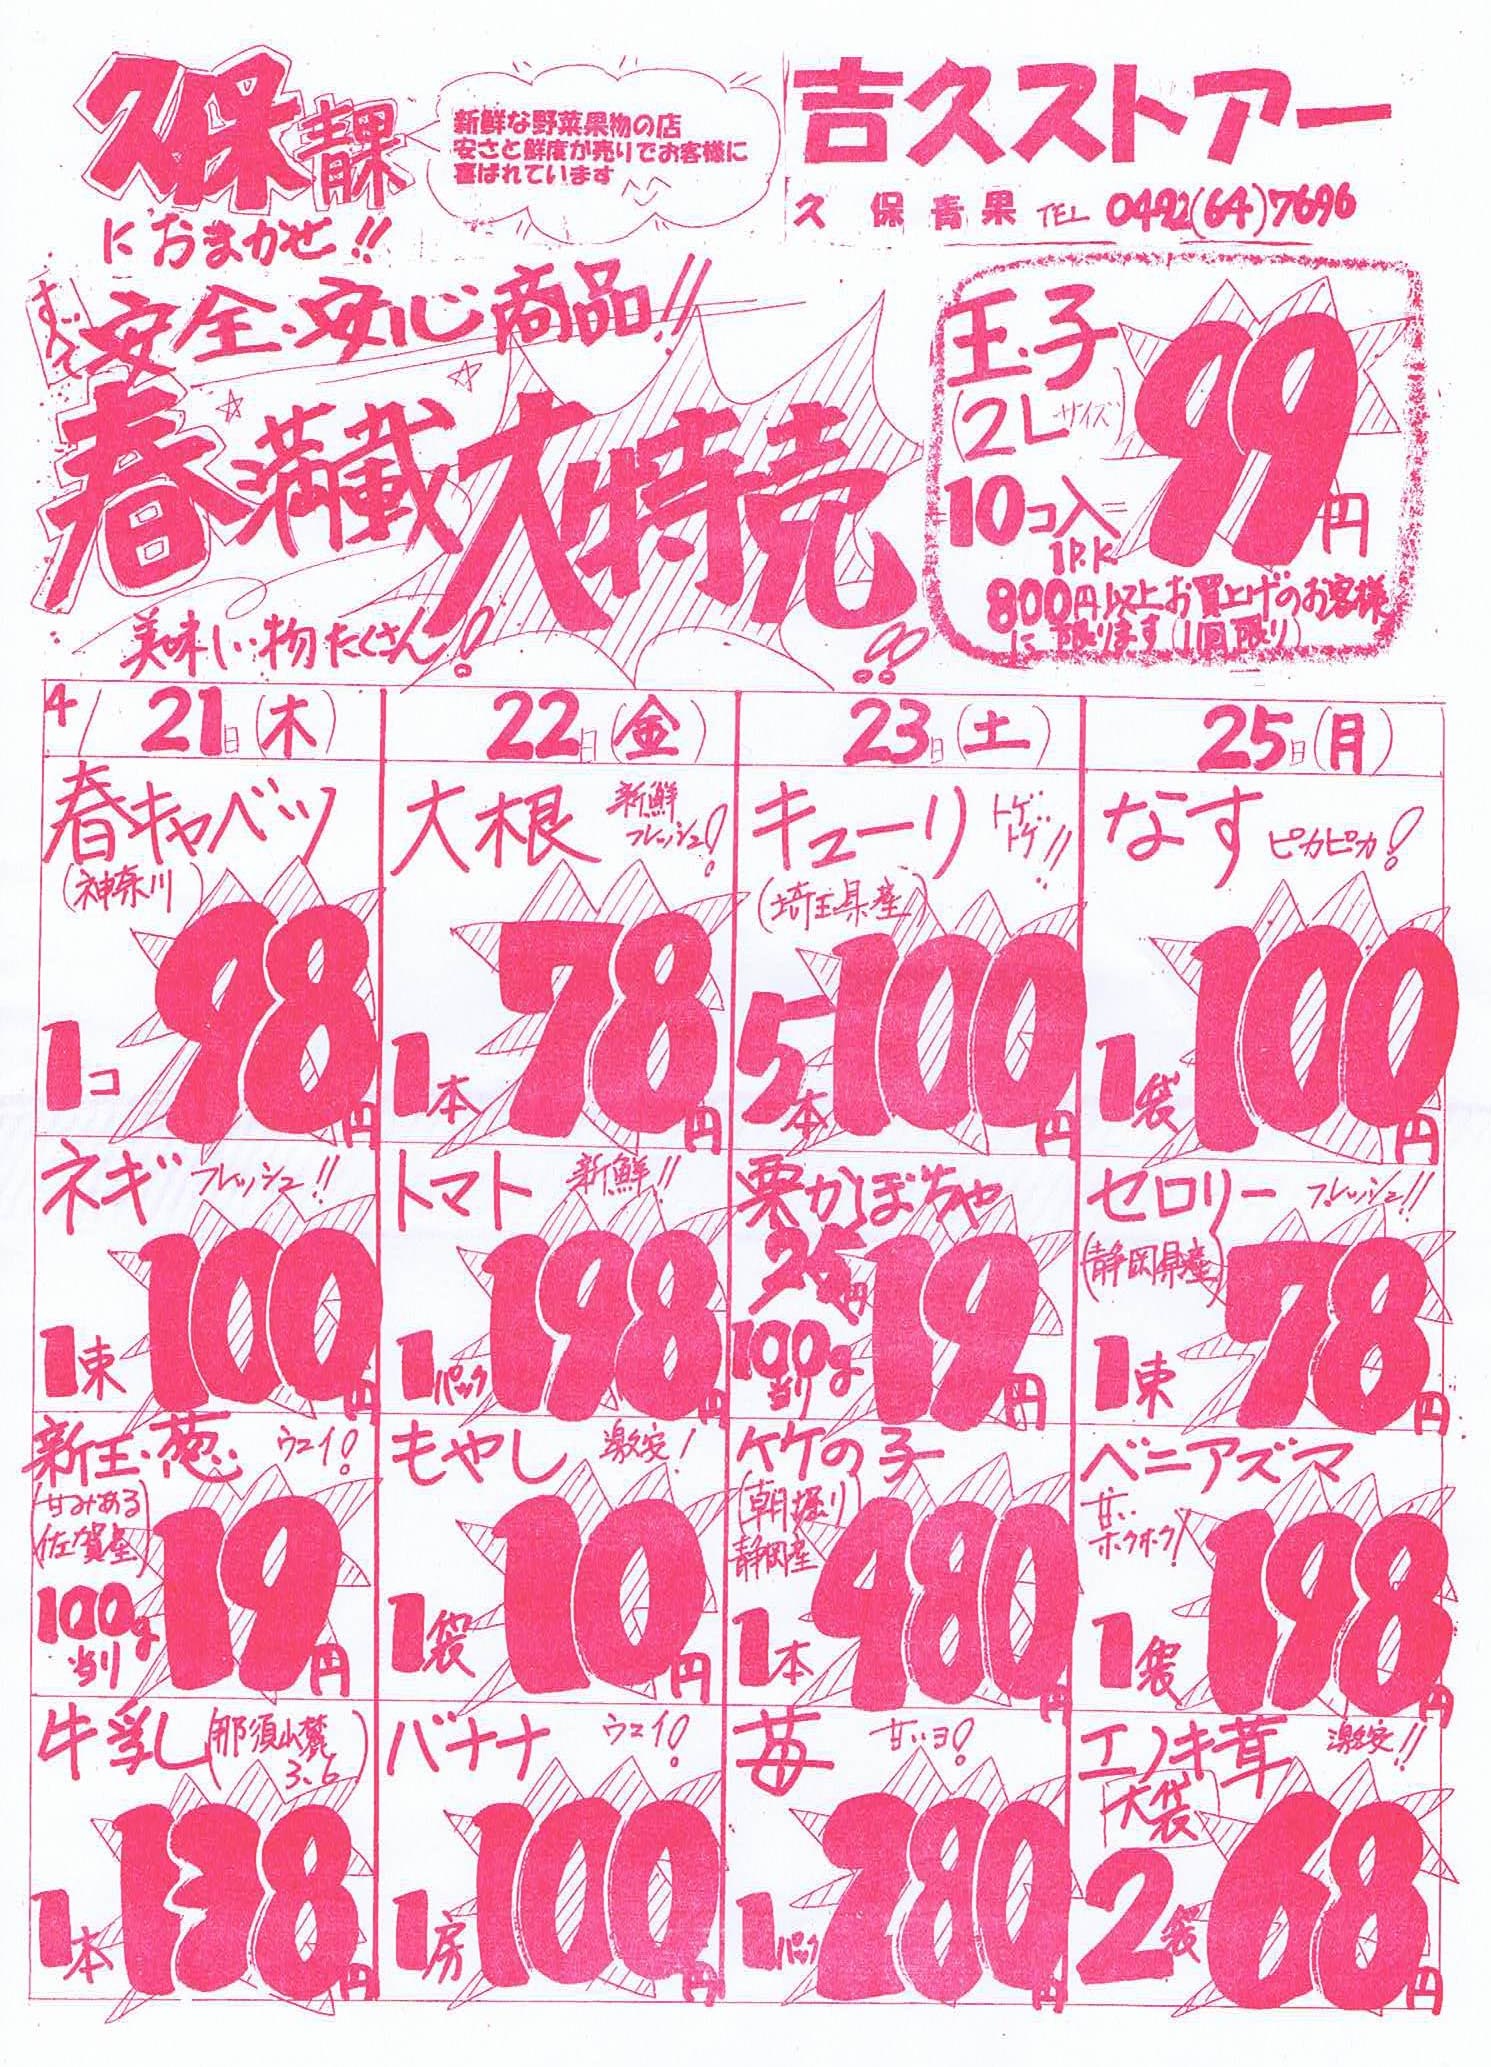 久保青果
におまかせ!!
新鮮な野菜果物の店
安さと鮮度が売りでお客様に
喜ばれています
吉久ストアー
久保青果 TEL 0492(64)7696
すべて安全・安心商品!!
春満載大特売!!
美味しい物たくさん!
玉子
(2Lサイズ)
10コ入
1P.K
99円
800円以上お買上げのお客様
に限ります(1回限り)
4/21日(木)
22日(金)
23日(土)
25日(月)
春キャベツ
(神奈川)
1コ 98円
大根 新鮮フレッシュ!
1本 78円
キューリ トゲトゲ!!
(埼玉県産)
5本 100円
なす ピカピカ!
1袋 100円
ネギ フレッシュ!!
1束 100円
トマト 新鮮!!
1パック 198円
栗かぼちゃ
25円
100g当り 19円
セロリー フレッシュ!!
(静岡県産)
1束 78円
新玉葱 ウマイ!
(甘みある
佐賀産)
100g当り 19円
もやし 激安!
1袋 10円
竹の子
(朝掘り)
静岡産
1本 480円
ベニアズマ
甘い
ホクホク!
1袋 198円
牛乳(那須山麓3.6)
1本 138円
バナナ ウマイ!
1房 100円
苺 甘いヨ!
1パック 280円
エノキ茸 激安!!
大袋
2袋 68円